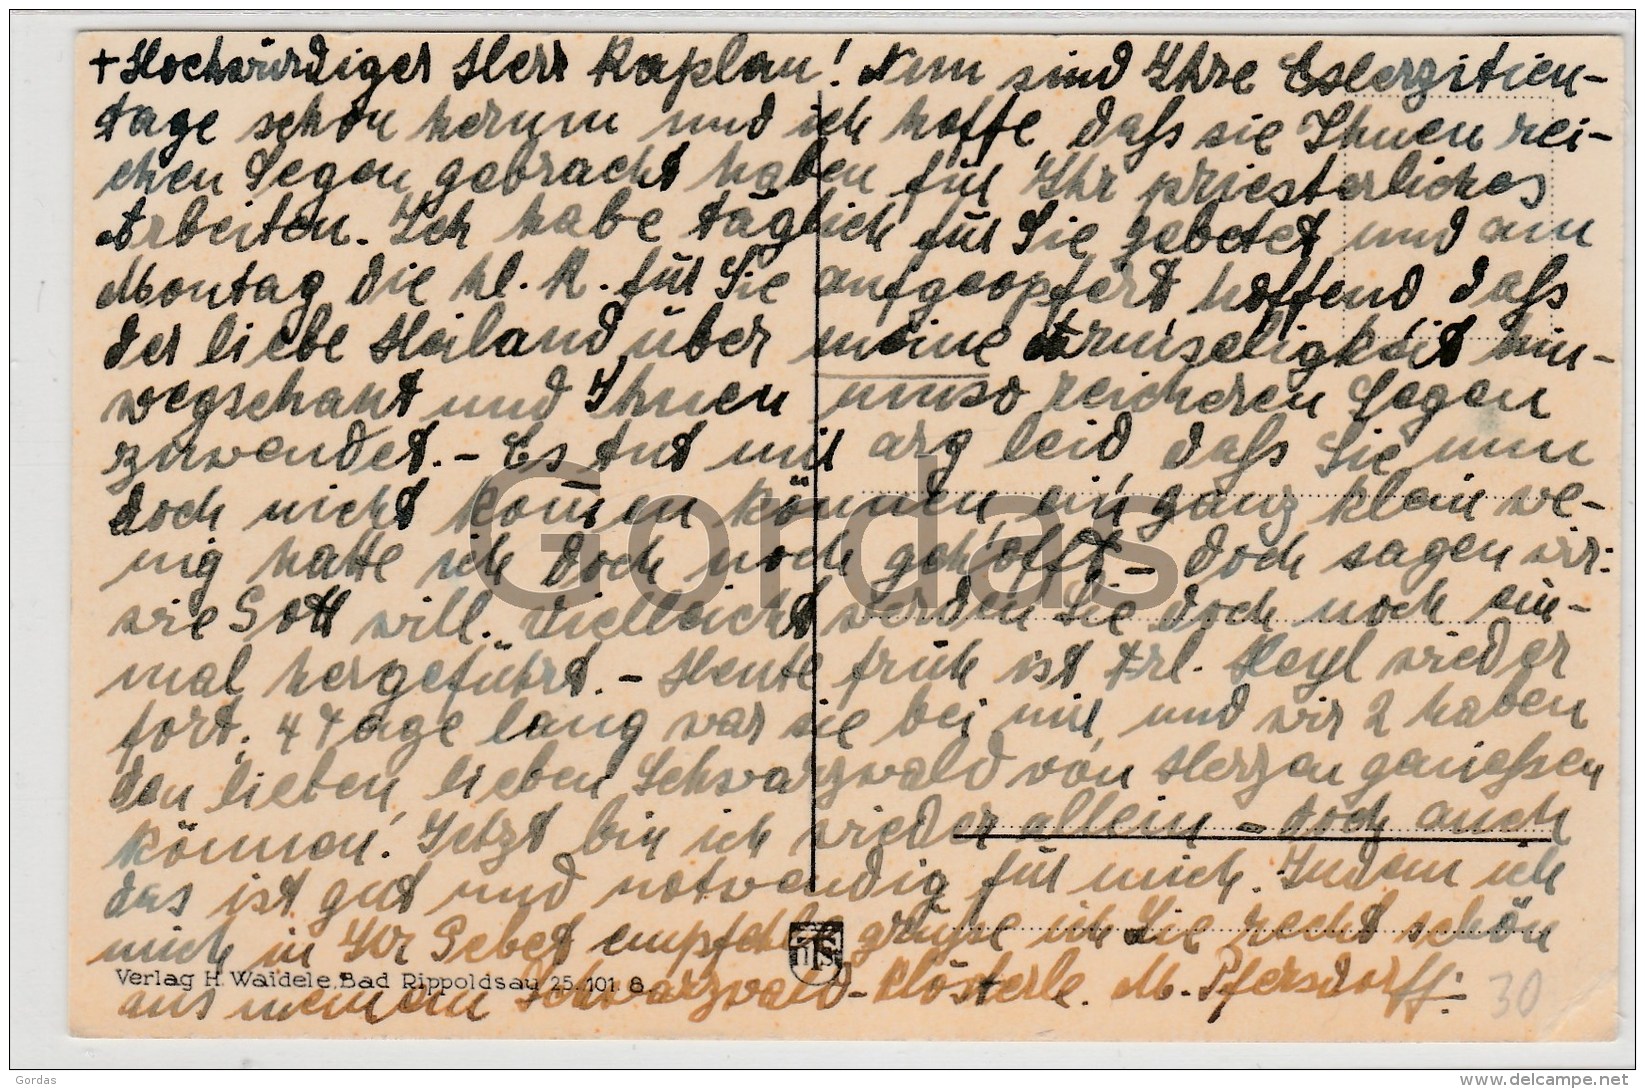 + Hochwürdiger Herr Kaplan! Nun sind Ihre Exerzitien-
tage schon herum und ich hoffe, daß sie Ihnen rei-
chen Segen gebracht haben für Ihr priesterliches
Arbeiten. Ich habe täglich für Sie gebetet und am
Montag die hl. K. für Sie aufgeopfert hoffend daß
der liebe Heiland über meine Armseligkeit hin-
wegschaut und Ihnen umso reicheren Segen
zuwendet. – Es tut mir arg leid, daß Sie nun
doch nicht kom̅en können, ein ganz klein we-
nig hatte ich doch noch gehofft – doch sagen wir:
wie Gott will. Vielleicht werden Sie doch noch ein-
mal hergeführt. – Heute früh ist Frl. Heyl wieder
fort. 4 Tage lang war sie bei mir, und wir 2 haben
den lieben, lieben Schwarzwald von Herzen genießen
können. Jetzt bin ich wieder allein – doch auch
das ist gut und notwendig für mich. Indem ich
mich in Ihr Gebet empfehle grüße ich Sie recht schön
aus meinem Schwarzwald-Klösterle. M. Pfersdorff.
Verlag H. Waidele, Bad Rippoldsau 25.101 8.
30
Gordas
Gordas
www.delcampe.net